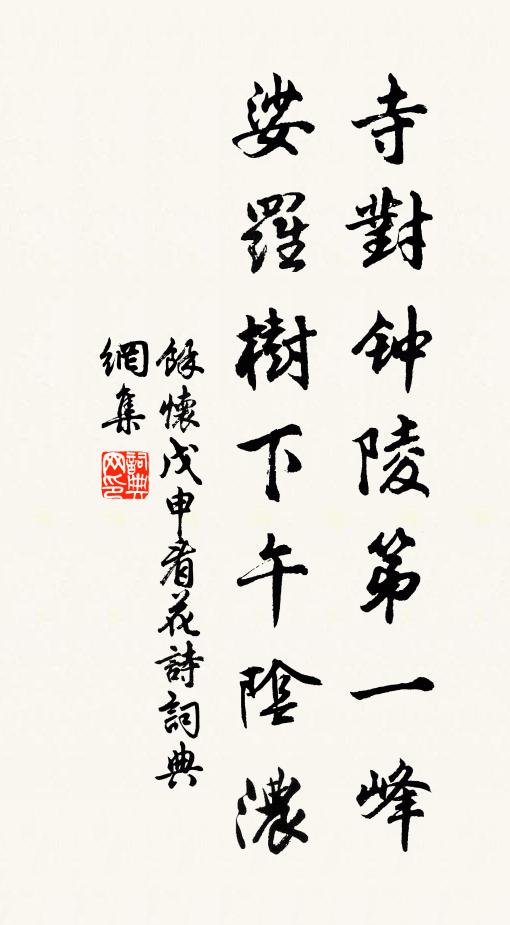 寺對钟陵第一峰
娑羅樹下午陰濃
餘懷戊申看花詩詞典
網集
詞典網印